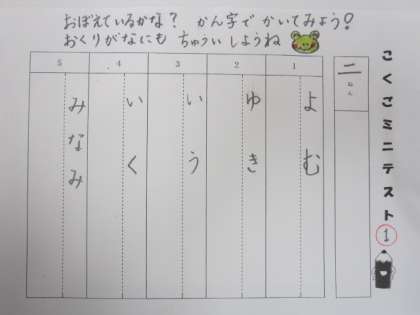 こくごミニテスト①
二ねん
おぼえているかな？ かん字で かいてみよう！
おくりがなにも ちゅうい しようね
1
よむ
2
ゆき
3
いう
4
いく
5
みなみ